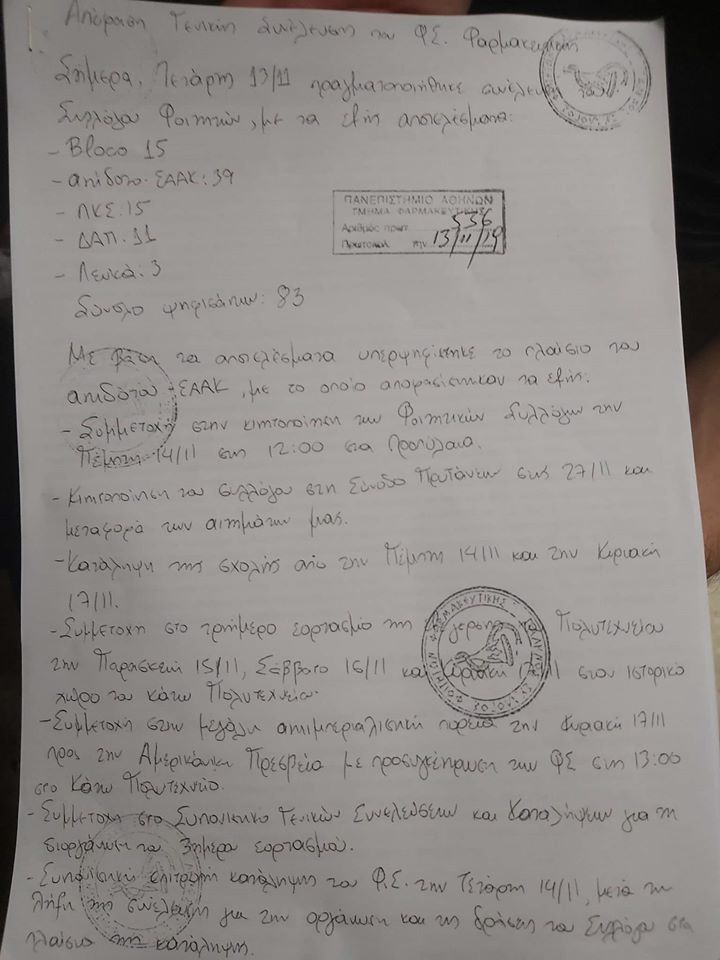 Απόφαση Γενικής Συνέλευσης του Φ.Σ. Φαρμακευτικής
Σήμερα, Τετάρτη 13/11 πραγματοποιήθηκε συνέλευση
Συλλόγου Φοιτητών, με τα εξής αποτελέσματα:
- Bloco 15
- αντίδοτο-ΕΑΑΚ: 39
- ΠΚΣ: 15
- ΔΑΠ: 11
- Λευκά: 3
Σύνολο ψηφισάντων: 83
ΠΑΝΕΠΙΣΤΗΜΙΟ ΑΘΗΝΩΝ
ΤΜΗΜΑ ΦΑΡΜΑΚΕΥΤΙΚΗΣ
Αριθμός πρωτ. 536
Πρωτοκολ. την 13/11/19
Με βάση τα αποτελέσματα υπερψηφίστηκε το πλαίσιο του
αντιδότου-ΕΑΑΚ, με το οποίο αποφασίστηκαν τα εξής:
- Συμμετοχή στην κινητοποίηση των Φοιτητικών Συλλόγων την
Πέμπτη 14/11 στις 12:00 στα Προπύλαια.
- Κινητοποίηση του συλλόγου στη Σύνοδο Πρυτάνεων στις 27/11 και
μεταφορά των αιτημάτων μας.
- Κατάληψη της σχολής από την Πέμπτη 14/11 και την Κυριακή
17/11.
- Συμμετοχή στο τριήμερο εορτασμό της Πολυτεχνείου
την Παρασκευή 15/11, Σάββατο 16/11 και Κυριακή 17/11 στον ιστορικό
χώρο του κάτω Πολυτεχνείου.
- Συμμετοχή στην μεγάλη αντιιμπεριαλιστική πορεία την Κυριακή 17/11
προς την Αμερικάνικη Πρεσβεία με προσυγκέντρωση των ΦΣ στις 13:00
στο Κάτω Πολυτεχνείο.
- Συμμετοχή στο Συντονιστικό Γενικών Συνελεύσεων και Καταλήψεων για τη
διοργάνωση του 3ημερου εορτασμού.
- Συντονιστική επιτροπή κατάληψης του Φ.Σ. την Τετάρτη 14/11, μετά τη
λήξη της συνέλευσης για την οργάνωση και τις δράσεις του Συλλόγου στα
πλαίσια της κατάληψης.